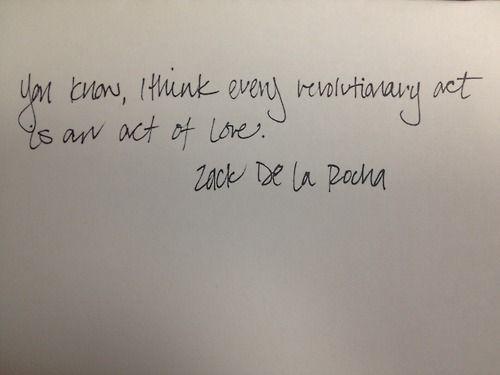 you know, I think every revolutionary act
is an act of love.
Zack De la Rocha